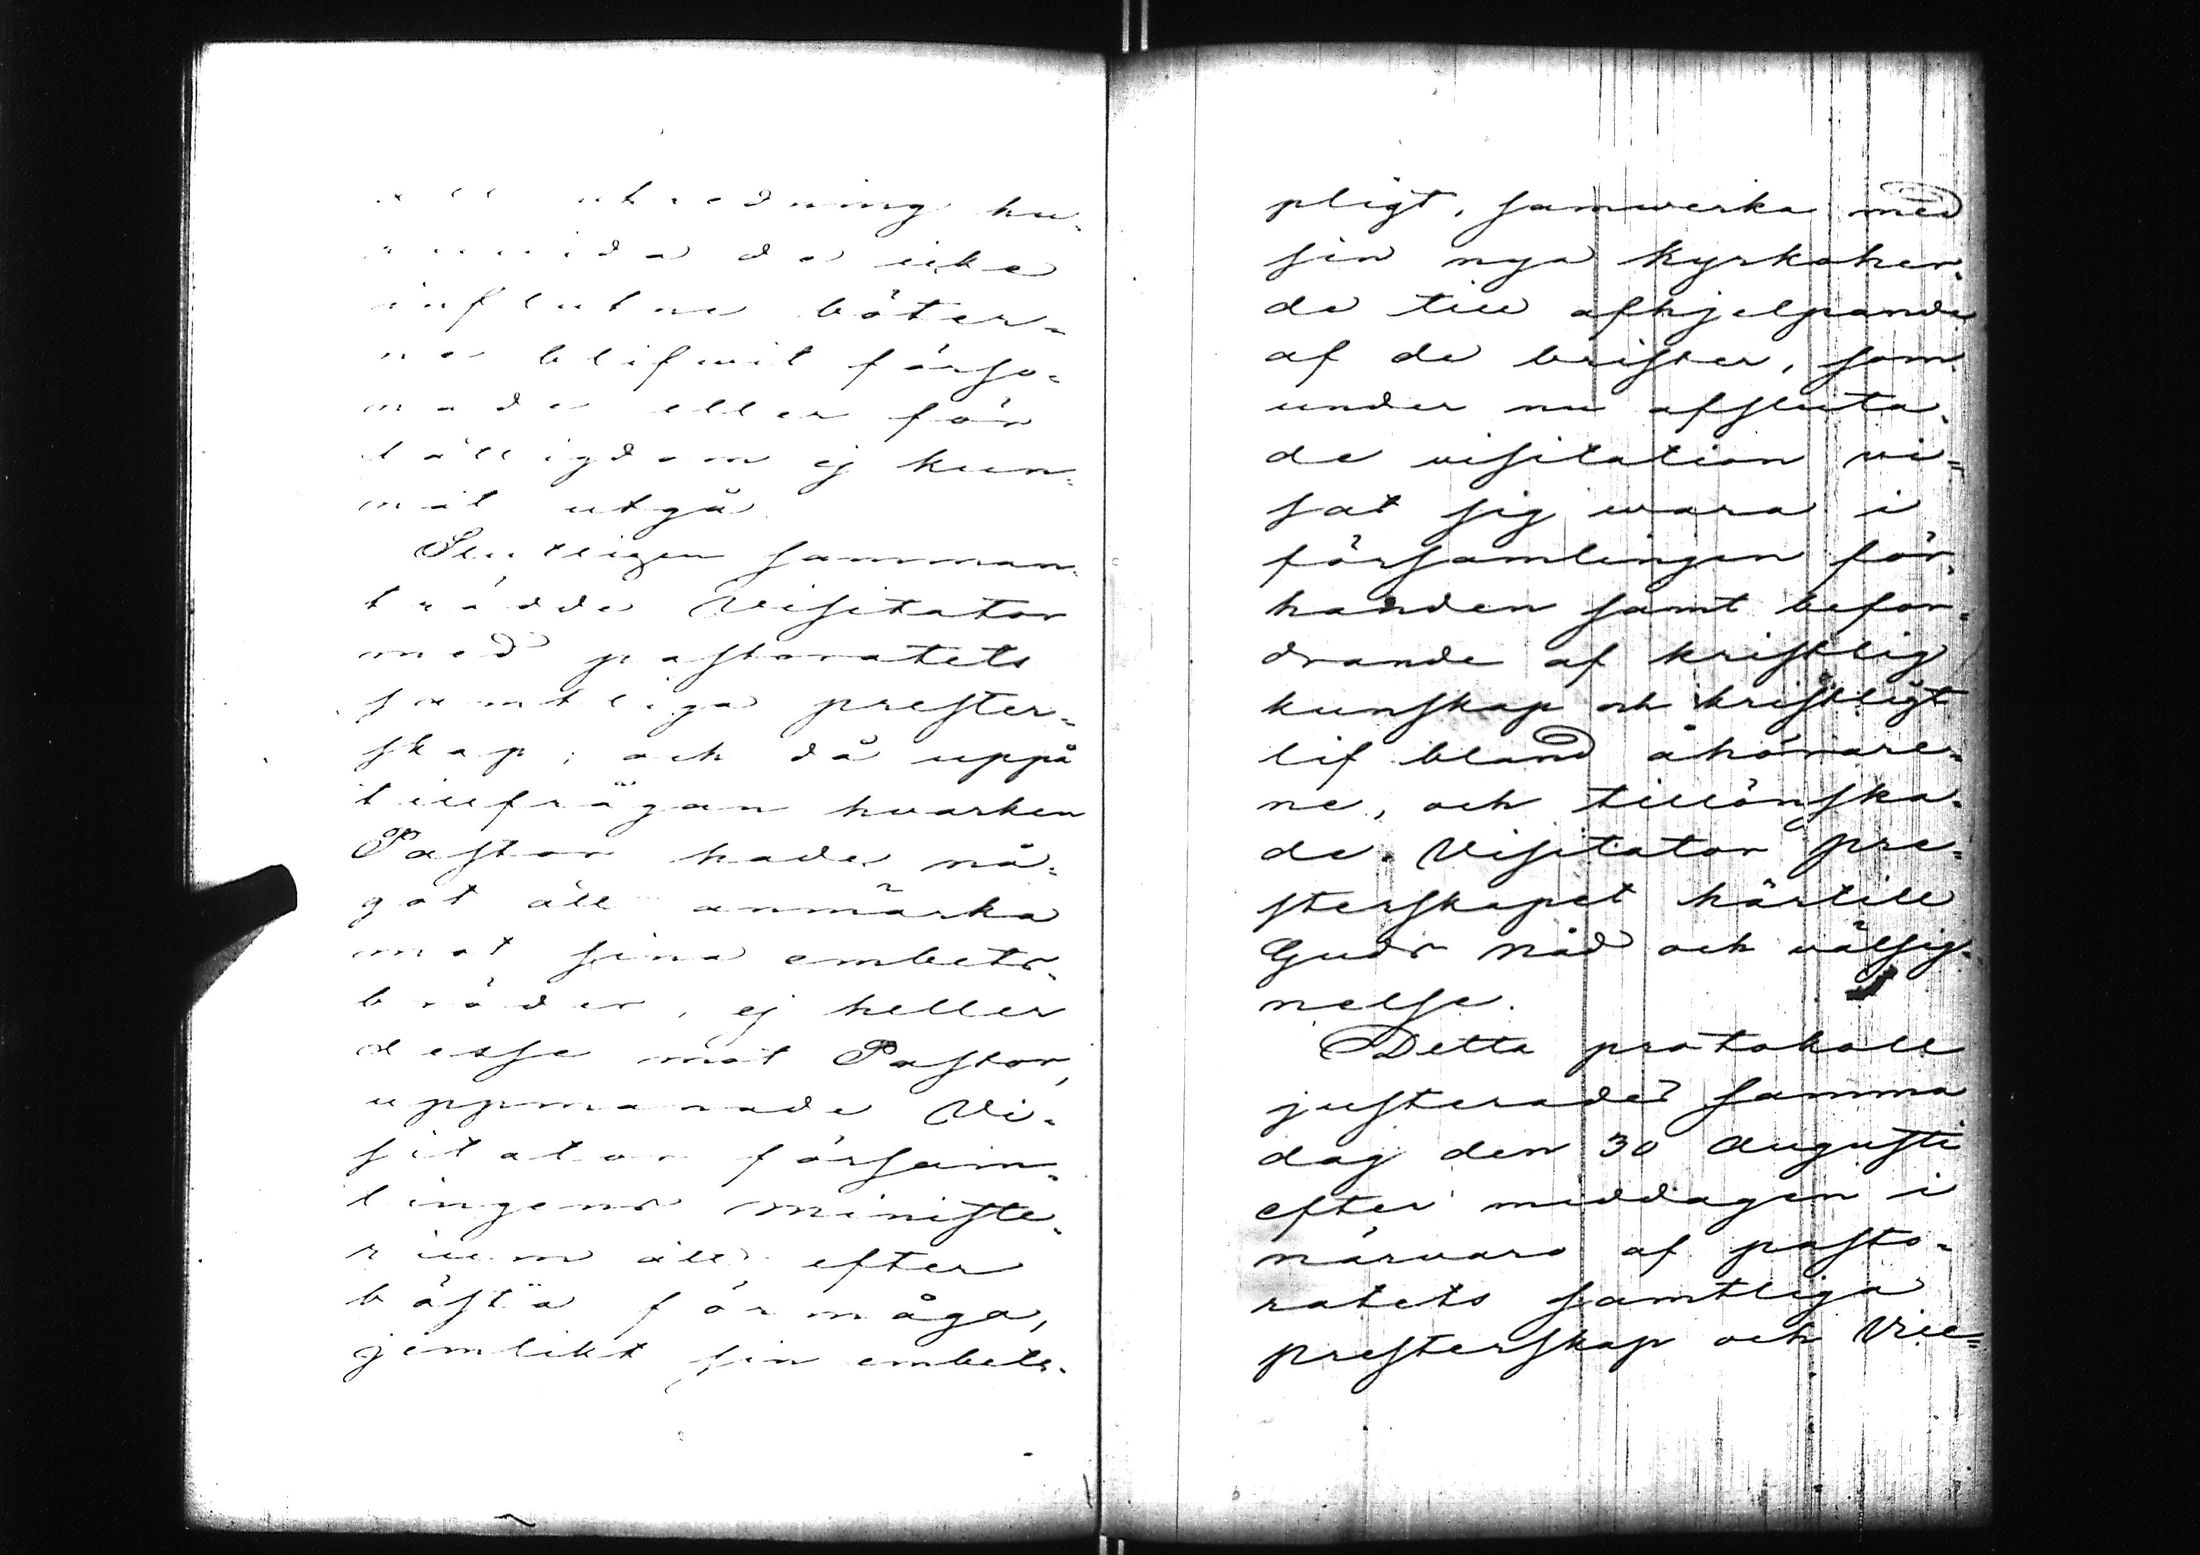 utredning hu-
ruvida de icke
influtne böter-
na blifwit förso-
nade eller för
tälligdom ej kun-
nat utgå
Slutligen samman-
trädde Visitator
med pastoratets
samtliga prester-
skap; och då uppå
tillfrågan hvarken
Pastor hade nå-
got att anmärka
mot sina embets-
bröder, ej heller
desse mot Pastor,
uppmanade Vi-
sitator försam-
lingens ministe-
rium att efter
bästa förmåga,
jemlikt sin embets-
pligt, samwerka med
sin nya kyrkoher-
de till afhjelpande
af de brister, som
under nu afsluta-
de visitation vi-
sat sig wara i
församlingen för-
handen samt befor-
drande af kristlig
kunskap och kristligt
lif bland åhörare-
ne, och tillönska-
de Visitator pre-
sterskapet härtill
Guds nåd och välsig-
nelse.
Detta protokoll
justerades samma
dag den 30 Augusti
efter middagen i
närvaro af pasto-
ratets samtliga
presterskap och Vice-